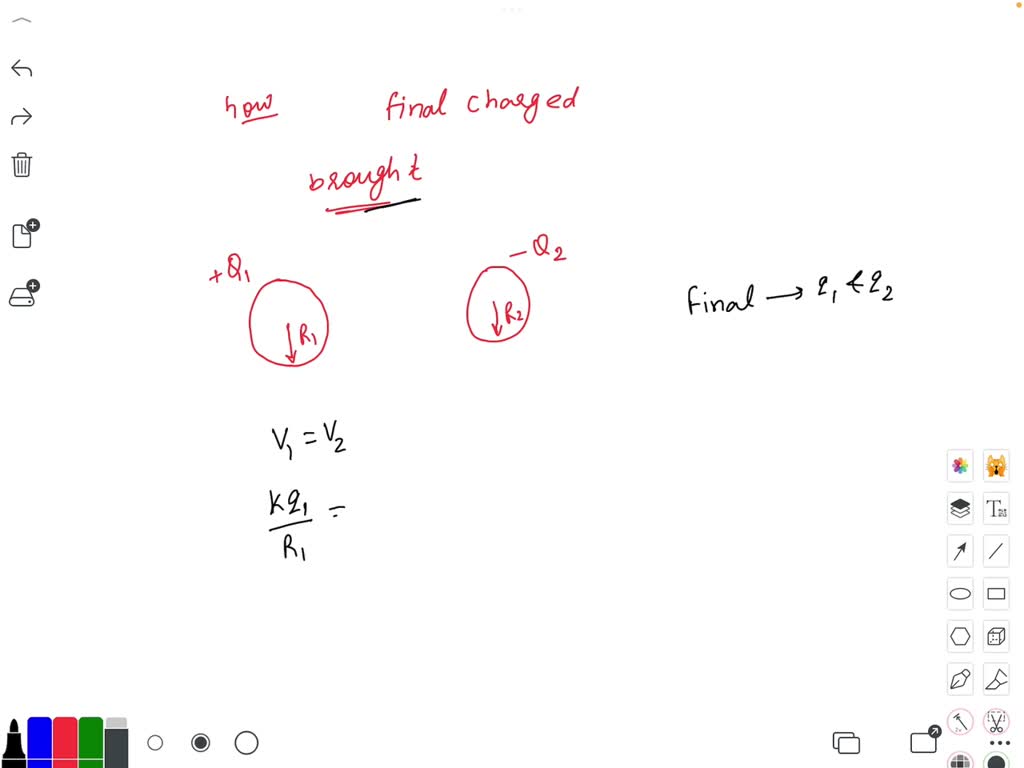 how final charged
brought
+Q1
-Q2
R1
R2
final → q1 & q2
V1 = V2
Kq1
R1
=